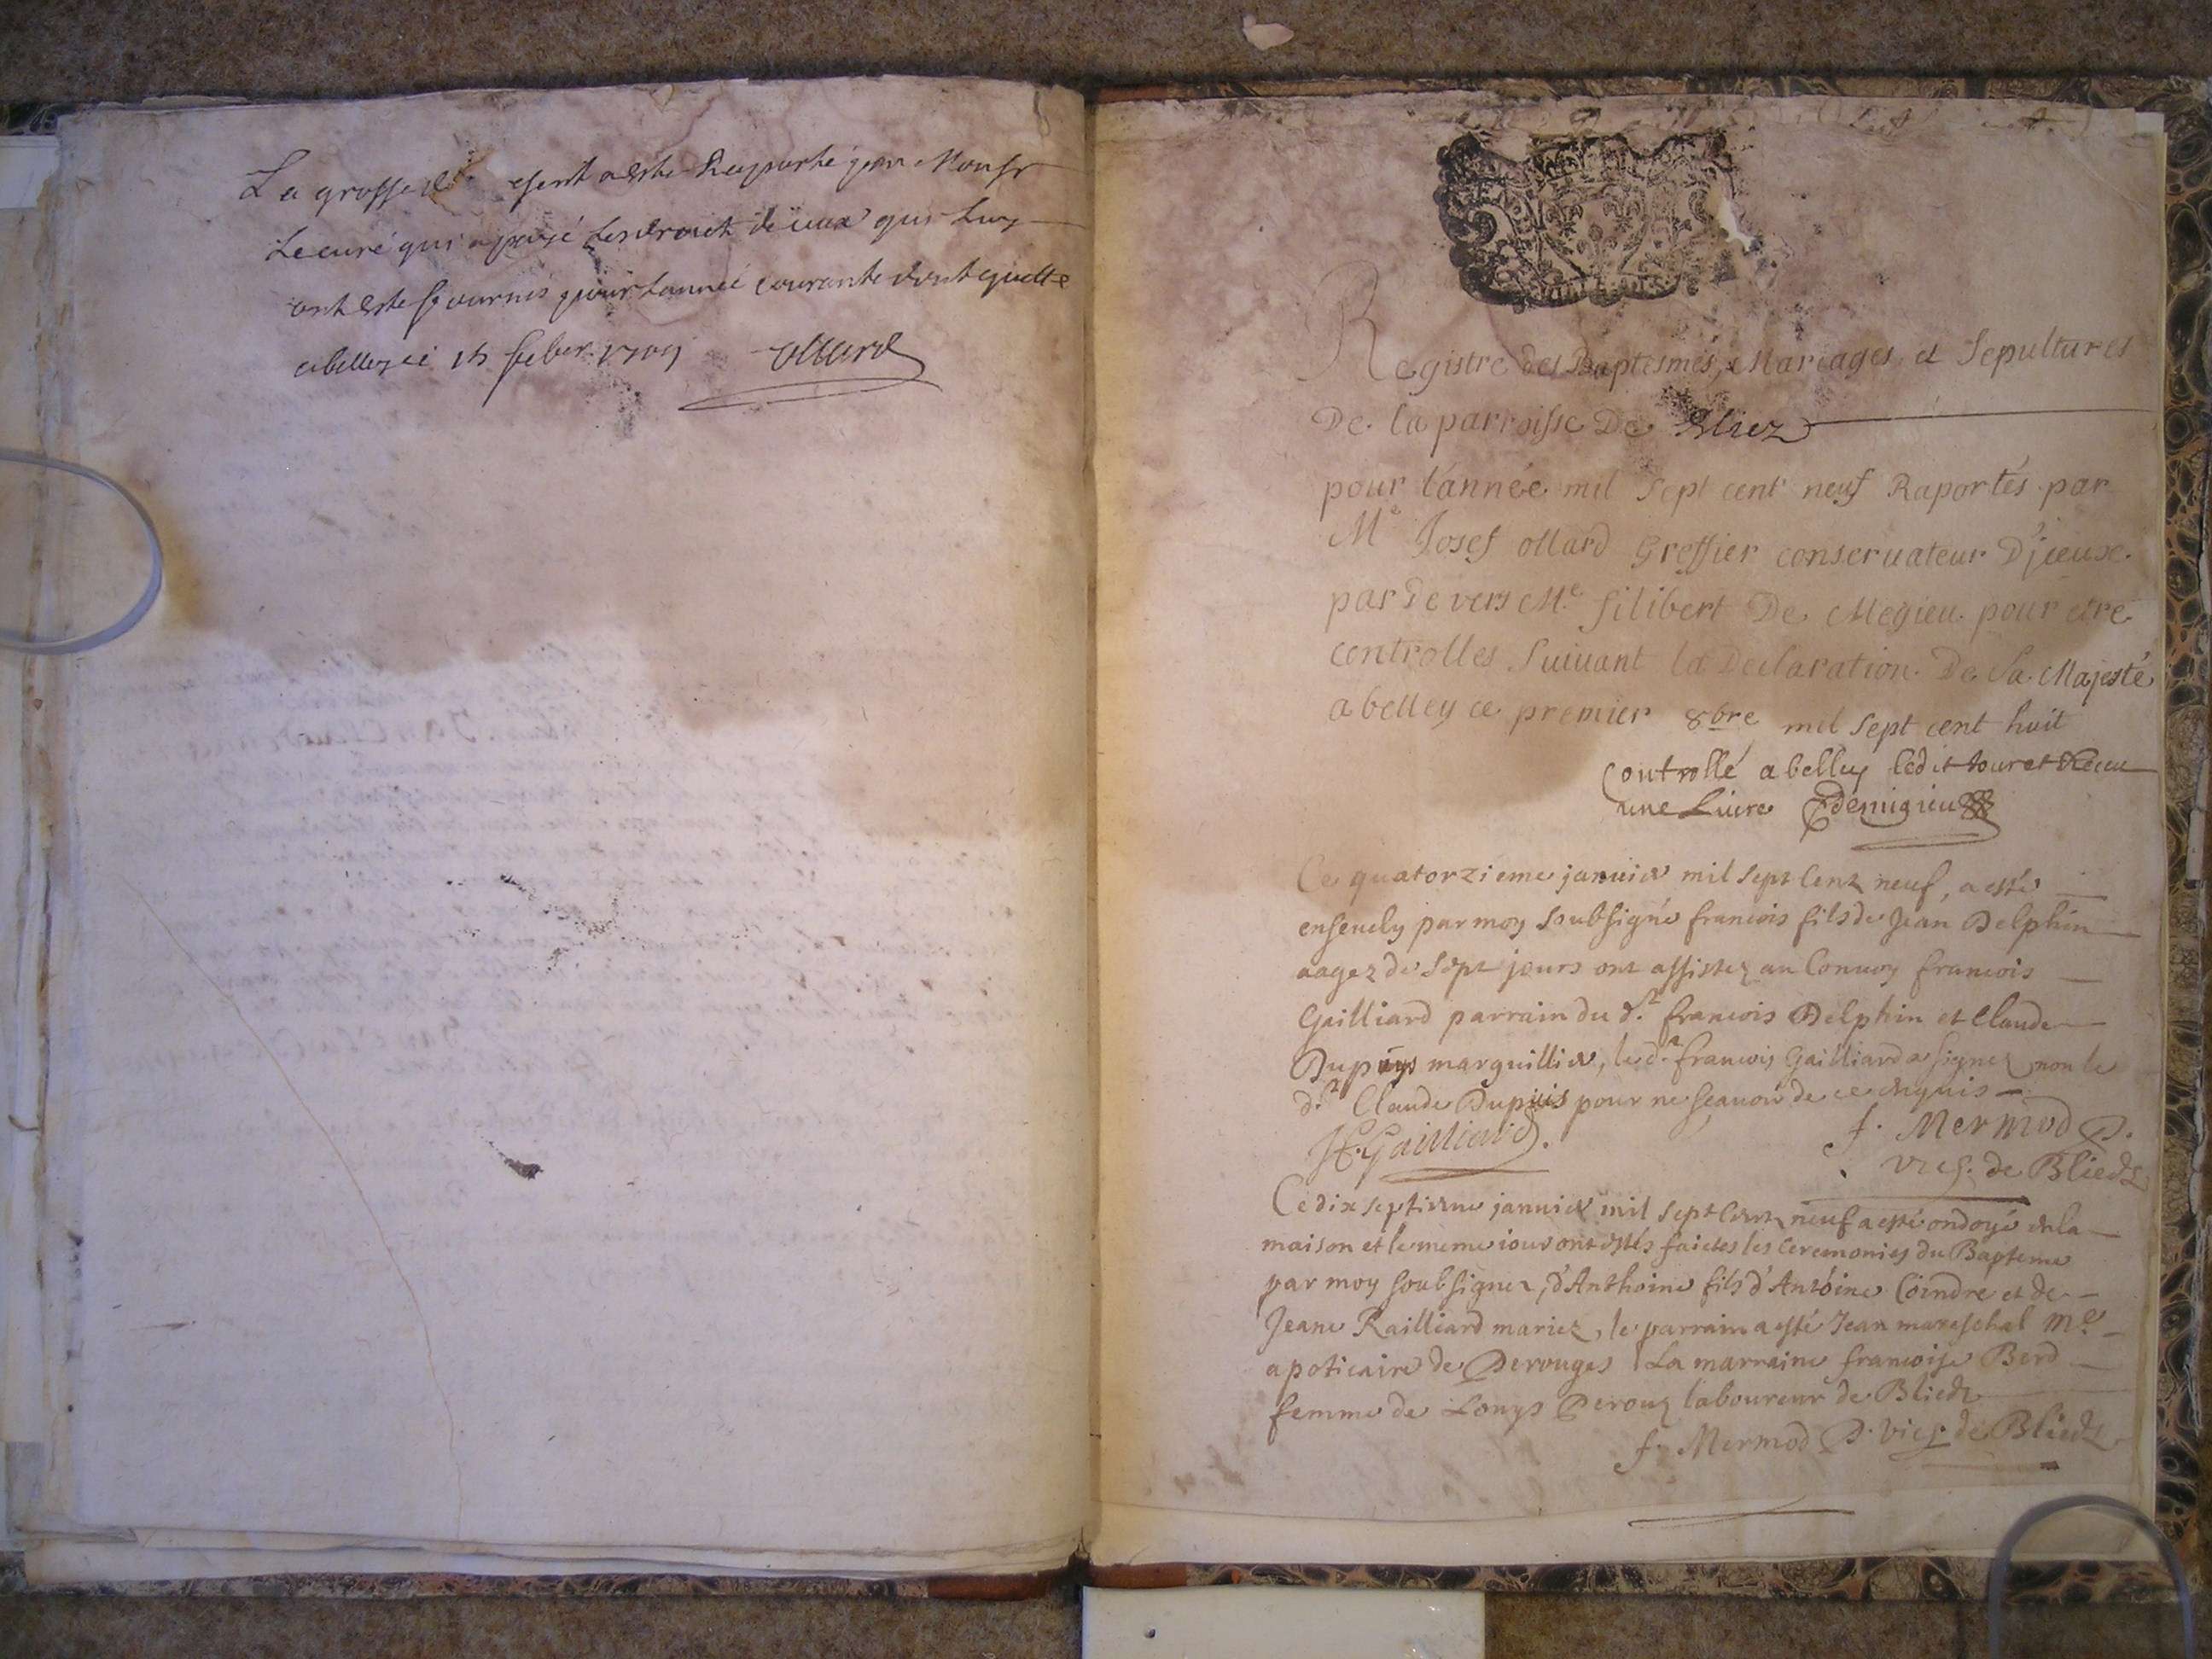 La grosse du esent a este Raporté par Monsr
Le curé qui a payé Les droict diceux qui Luy
ont este fournis pour Lannée courante dont quitte
a belley ce 15 feber 1709 Ollard
Registre des Baptesmes, Mariages et Sepultures
De la parroisse De Bliez
pour l'année mil sept cent neuf Raportés par
Me Josef ollard Greffier conseruateur D'jceux
par De vers Me filibert De Megieu pour etre
controlles Suiuant la Declaration De Sa Majesté
a belley ce premier 8bre mil sept cent huit
Controllé a belley ledit Jour et Receu
une Liure Demigieu
Ce quatorzieme januier mil sept cent neuf, a esté
enseuely par moy soubsigné francois fils de Jean Delphin
aagez de sept jours ont assistez au Conuoy francois
Gailliard parrain du dt francois Delphin et Claude
Dupuys marguillier, le dt francois Gailliard a signez non le
dt Claude Dupuis pour ne scauoir de ce enquis
F. Gailliard.
f. Mermod P.
vics. de Bliedz
Ce dix septieme januier mil sept cent neuf a esté ondoyé en la
maison et le meme iour ont estés faictes les Ceremonies du Bapteme
par moy soubsignez, d'Anthoine fils d'Antoine Coindre et de
Jeane Railliard mariez, le parrain a esté Jean mareschal me
apoticaire de Perouges La marraine francoise Berd
femme de Louys Perouz laboureur de Bliedz
f. Mermod P. vics. de Bliedz